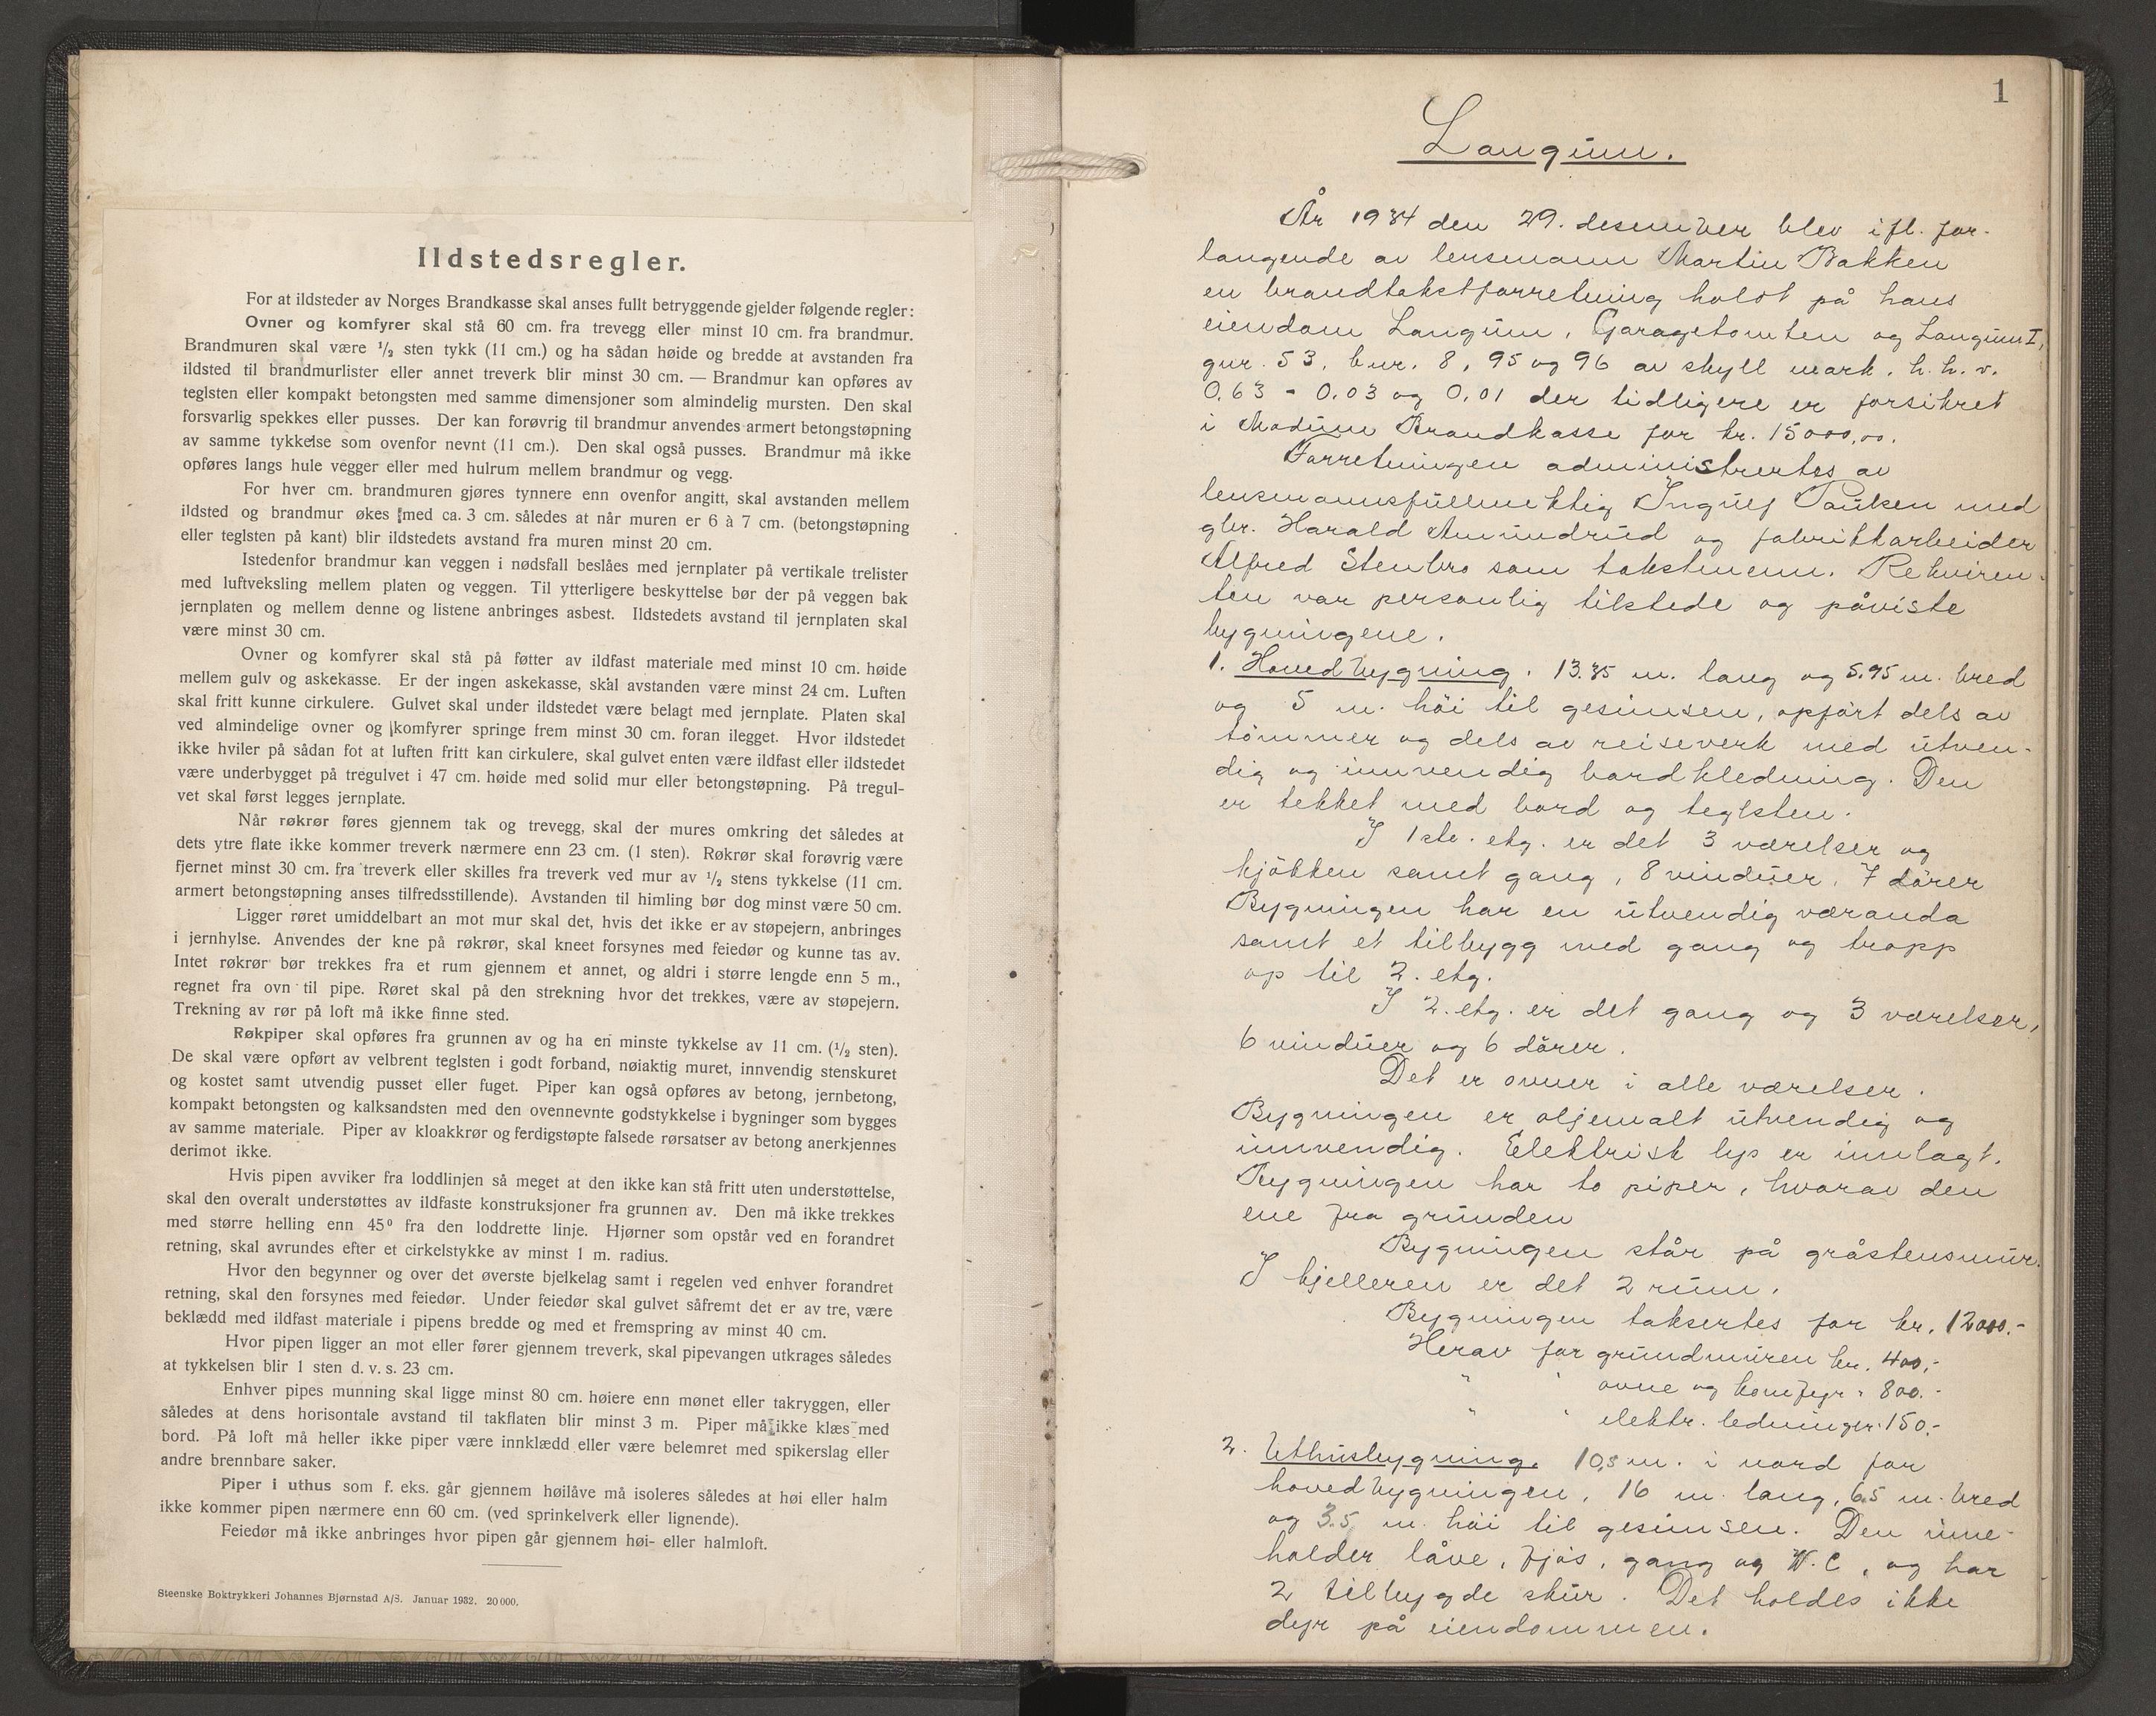 Ildstedsregler.
For at ildsteder av Norges Brandkasse skal anses fullt betryggende gjelder følgende regler:
Ovner og komfyrer skal stå 60 cm. fra trevegg eller minst 10 cm. fra brandmur.
Brandmuren skal være ¹/₂ sten tykk (11 cm.) og ha sådan høide og bredde at avstanden fra
ildsted til brandmurlister eller annet treverk blir minst 30 cm. — Brandmur kan opføres av
teglsten eller kompakt betongsten med samme dimensjoner som almindelig mursten. Den skal
forsvarlig spekkes eller pusses. Der kan forøvrig til brandmur anvendes armert betongstøpning
av samme tykkelse som ovenfor nevnt (11 cm.). Den skal også pusses. Brandmur må ikke
opføres langs hule vegger eller med hulrum mellem brandmur og vegg.
For hver cm. brandmuren gjøres tynnere enn ovenfor angitt, skal avstanden mellem
ildsted og brandmur økes med ca. 3 cm. således at når muren er 6 à 7 cm. (betongstøpning
eller teglsten på kant) blir ildstedets avstand fra muren minst 20 cm.
Istedenfor brandmur kan veggen i nødsfall beslåes med jernplater på vertikale trelister
med luftveksling mellem platen og veggen. Til ytterligere beskyttelse bør der på veggen bak
jernplaten og mellem denne og listene anbringes asbest. Ildstedets avstand til jernplaten skal
være minst 30 cm.
Ovner og komfyrer skal stå på føtter av ildfast materiale med minst 10 cm. høide
mellem gulv og askekasse. Er der ingen askekasse, skal avstanden være minst 24 cm. Luften
skal fritt kunne cirkulere. Gulvet skal under ildstedet være belagt med jernplate. Platen skal
ved almindelige ovner og komfyrer springe frem minst 30 cm. foran ilegget. Hvor ildstedet
ikke hviler på sådan fot at luften fritt kan cirkulere, skal gulvet enten være ildfast eller ildstedet
være underbygget på tregulvet i 47 cm. høide med solid mur eller betongstøpning. På tregul-
vet skal først legges jernplate.
Når røkrør føres gjennem tak og trevegg, skal der mures omkring det således at
dets ytre flate ikke kommer treverk nærmere enn 23 cm. (1 sten). Røkrør skal forøvrig være
fjernet minst 30 cm. fra treverk eller skilles fra treverk ved mur av ¹/₂ stens tykkelse (11 cm.
armert betongstøpning anses tilfredsstillende). Avstanden til himling bør dog minst være 50 cm.
Ligger røret umiddelbart an mot mur skal det, hvis det ikke er av støpejern, anbringes
i jernhylse. Anvendes der kne på røkrør, skal kneet forsynes med feiedør og kunne tas av.
Intet røkrør bør trekkes fra et rum gjennem et annet, og aldri i større lengde enn 5 m.,
regnet fra ovn til pipe. Røret skal på den strekning hvor det trekkes, være av støpejern.
Trekning av rør på loft må ikke finne sted.
Røkpiper skal opføres fra grunnen av og ha en minste tykkelse av 11 cm. (¹/₂ sten).
De skal være opført av velbrent teglsten i godt forband, nøiaktig muret, innvendig stenskuret
og kostet samt utvendig pusset eller fuget. Piper kan også opføres av betong, jernbetong,
kompakt betongsten og kalksandsten med den ovennevnte godstykkelse i bygninger som bygges
av samme materiale. Piper av kloakkrør og ferdigstøpte falsede rørsatser av betong anerkjennes
derimot ikke.
Hvis pipen avviker fra loddlinjen så meget at den ikke kan stå fritt uten understøttelse,
skal den overalt understøttes av ildfaste konstruksjoner fra grunnen av. Den må ikke trekkes
med større helling enn 45⁰ fra den loddrette linje. Hjørner som opstår ved en forandret
retning, skal avrundes efter et cirkelstykke av minst 1 m. radius.
Hvor den begynner og over det øverste bjelkelag samt i regelen ved enhver forandret
retning, skal den forsynes med feiedør. Under feiedør skal gulvet såfremt det er av tre, være
beklædd med ildfast materiale i pipens bredde og med et fremspring av minst 40 cm.
Hvor pipen ligger an mot eller fører gjennem treverk, skal pipevangen utkrages således
at tykkelsen blir 1 sten d. v. s. 23 cm.
Enhver pipes munning skal ligge minst 80 cm. høiere enn mønet eller takryggen, eller
således at dens horisontale avstand til takflaten blir minst 3 m. Piper må ikke klæs med
bord. På loft må heller ikke piper være innklædd eller være belemret med spikerslag eller
andre brennbare saker.
Piper i uthus som f. eks. går gjennem høilåve må isoleres således at høi eller halm
ikke kommer pipen nærmere enn 60 cm. (ved sprinkelverk eller lignende).
Feiedør må ikke anbringes hvor pipen går gjennem høi- eller halmloft.
Steenske Boktrykkeri Johannes Bjørnstad A/S. Januar 1932. 20 000.
1
Langum.
År 1934 den 29. desember blev ifl. for-
langende av lensmann Martin Bakken
en brandtakstforretning holdt på hans
eiendom Langum, Garagetomten og Langum I,
gnr. 53, bnr. 8, 95 og 96 av skyll mark. h. h. v.
0,63 - 0,03 og 0,01 der tidligere er forsikret
i Modum Brandkasse for kr. 15000,00.
Forretningen administrertes av
lensmannsfullmektig Ingulf Pauken med
gbr. Harald Amundrud og fabrikkarbeider
Alfred Stenbro som takstmenn. Rekviren-
ten var personlig tilstede og påviste
bygningene.
1. Hovedbygning. 13.85 m. lang og 5.95 m. bred
og 5 m. høi til gesimsen, opført dels av
tømmer og dels av reiseverk med utven-
dig og innvendig bordkledning. Den
er tekket med bord og teglsten.
I 1ste. etg. er det 3 værelser og
kjøkken samt gang, 8 vinduer, 7 dører
Bygningen har en utvendig væranda
samt et tilbygg med gang og tropp
op til 2. etg.
I 2. etg. er det gang og 3 værelser,
6 vinduer og 6 dører.
Det er ovner i alle værelser.
Bygningen er oljemalt utvendig og
innvendig. Elektrisk lys er innlagt.
Bygningen har to piper, hvorav den
ene fra grunden
Bygningen står på gråstensmur.
I kjelleren er det 2 rum.
Bygningen taksertes for kr. 12000.-
Herav for grundmuren kr. 400,-
" " ovne og komfyr " 800.-
" " elektr. ledninger " 150.-
2. Uthusbygning. 10,5 m. i nord for
hovedbygningen, 16 m. lang, 6.5 m. bred
og 3.5 m. høi til gesimsen. Den inne-
holder låve, fjøs, gang og W.C, og har
2 tilbygde skur. Det holdes ikke
dyr på eiendommen.